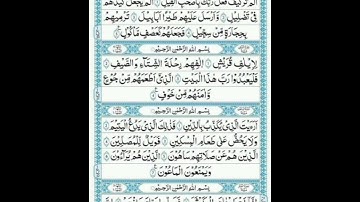 الم تر كيف فعل ربك باصحب الفيل الم يجعل كيدهم
في تضليل وارسل عليهم طيرا ابابيل ترميهم
بحجارة من سجيل فجعلهم كعصف ماكول
بسم الله الرحمن الرحيم
لايلف قريش الفهم رحلة الشتاء والصيف
فليعبدوا رب هذا البيت الذي اطعمهم من جوع
وامنهم من خوف
بسم الله الرحمن الرحيم
ارءيت الذي يكذب بالدين فذلك الذي يدع اليتيم
ولا يحض على طعام المسكين فويل للمصلين
الذين هم عن صلاتهم ساهون الذين هم يراءون
ويمنعون الماعون
بسم الله الرحمن الرحيم